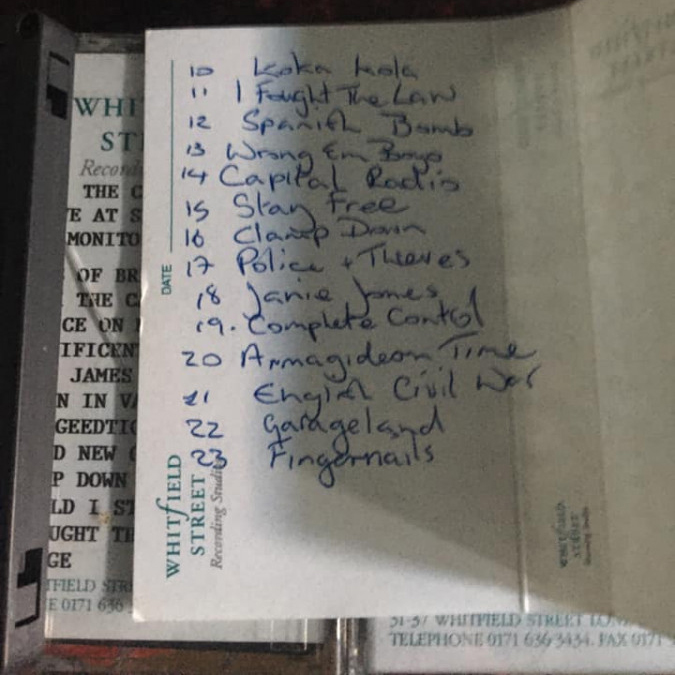 WHI
ST
Record
THE C
E AT S
MONITO
OF BR
THE C
CE ON
IFICENT
JAMES
N IN VA
GEEDTIO
D NEW
P DOWN
LD I ST
UGHT TH
GE
TFIELD STRE
E 0171 636
10 Koka Kola
11 I Fought The Law
12 Spanish Bomb
13 Wrong Em Boyo
14 Capital Radio
15 Stay Free
16 Clamp Down
17 Police + Thieves
18 Janie Jones
19. Complete Control
20 Armagideon Time
21 English Civil War
22 Garageland
23 Fingernails
DATE
WHITFIELD
STREET
Recording Studio
WHITFIELD
STREET
Recording Studio
31-37 WHITFIELD STREET LON
TELEPHONE 0171 636 3434. FAX 0171